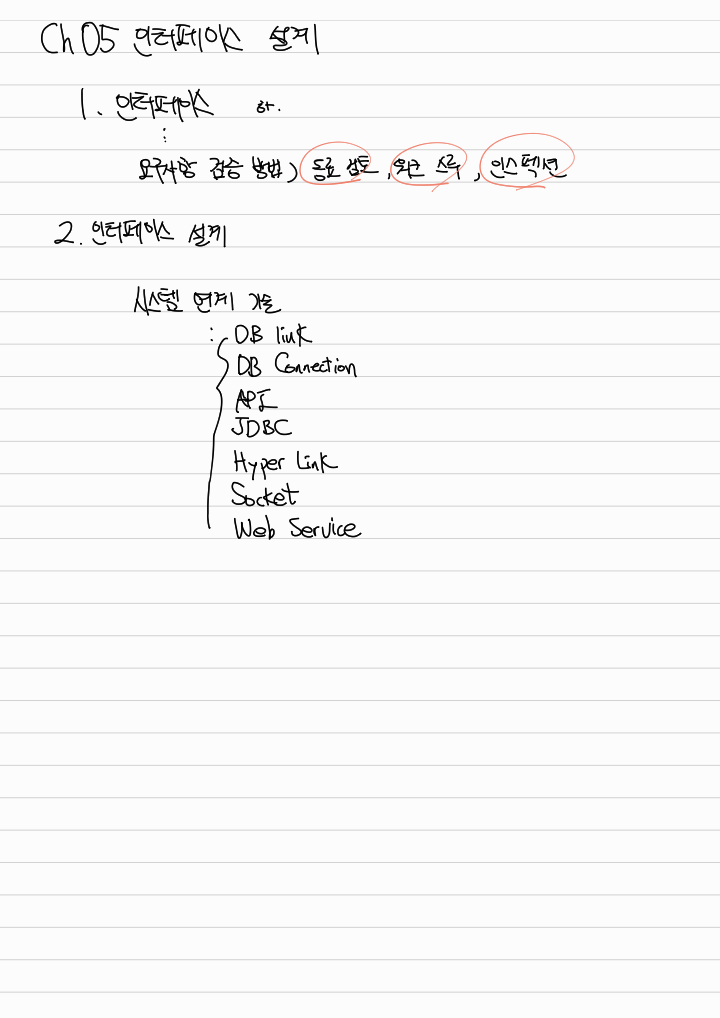 Ch 05 인터페이스 설계
1. 인터페이스
:
요구사항 검증 방법) 동료 검토, 워크 스루, 인스펙션
2. 인터페이스 설계
시스템 연계 기술
: DB link
DB Connection
API
JDBC
Hyper Link
Socket
Web Service